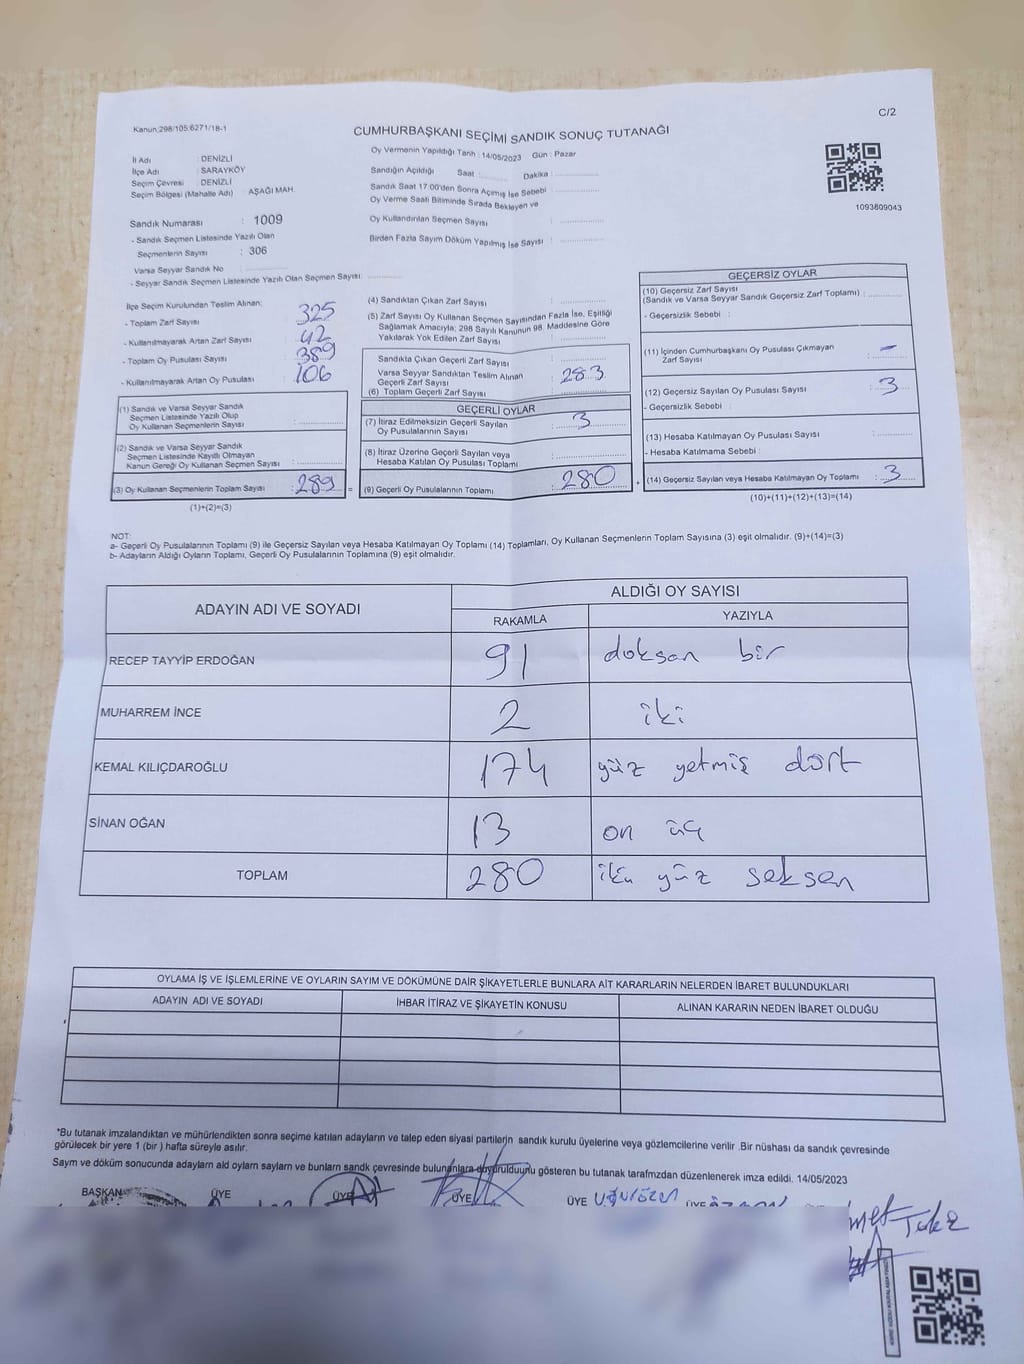 C/2
Kanun:298/105;6271/18-1
CUMHURBAŞKANI SEÇİMİ SANDIK SONUÇ TUTANAĞI
İl Adı : DENİZLİ
İlçe Adı : SARAYKÖY
Seçim Çevresi : DENİZLİ
Seçim Bölgesi (Mahalle Adı) : AŞAĞI MAH.
Sandık Numarası : 1009
- Sandık Seçmen Listesinde Yazılı Olan
Seçmenlerin Sayısı : 306
Varsa Seyyar Sandık No :
- Seyyar Sandık Seçmen Listesinde Yazılı Olan Seçmen Sayısı:
Oy Vermenin Yapıldığı Tarih : 14/05/2023 Gün : Pazar
Sandığın Açıldığı Saat : Dakika :
Sandık Saat 17:00'den Sonra Açımış İse Sebebi :
Oy Verme Saati Bitiminde Sırada Bekleyen ve
Oy Kullandırılan Seçmen Sayısı :
Birden Fazla Sayım Döküm Yapılmış İse Sayısı :
1093809043
İlçe Seçim Kurulundan Teslim Alınan:
- Toplam Zarf Sayısı : 325
- Kullanılmayarak Artan Zarf Sayısı : 42
- Toplam Oy Pusulası Sayısı : 389
- Kullanılmayarak Artan Oy Pusulası : 106
(1) Sandık ve Varsa Seyyar Sandık
Seçmen Listesinde Yazılı Olup
Oy Kullanan Seçmenlerin Sayısı :
(2) Sandık ve Varsa Seyyar Sandık
Seçmen Listesinde Kayıtlı Olmayan
Kanun Gereği Oy Kullanan Seçmen Sayısı :
(3) Oy Kullanan Seçmenlerin Toplam Sayısı : 289 =
(1)+(2)=(3)
(4) Sandıktan Çıkan Zarf Sayısı :
(5) Zarf Sayısı Oy Kullanan Seçmen Sayısından Fazla İse, Eşitliği
Sağlamak Amacıyla; 298 Sayılı Kanunun 98. Maddesine Göre
Yakılarak Yok Edilen Zarf Sayısı :
Sandıkta Çıkan Geçerli Zarf Sayısı :
Varsa Seyyar Sandıktan Teslim Alınan
Geçerli Zarf Sayısı : 283
(6) Toplam Geçerli Zarf Sayısı :
GEÇERLİ OYLAR
(7) İtiraz Edilmeksizin Geçerli Sayılan
Oy Pusulalarının Sayısı : 3
(8) İtiraz Üzerine Geçerli Sayılan veya
Hesaba Katılan Oy Pusulası Toplamı :
(9) Geçerli Oy Pusulalarının Toplamı : 280 +
GEÇERSİZ OYLAR
(10) Geçersiz Zarf Sayısı
(Sandık ve Varsa Seyyar Sandık Geçersiz Zarf Toplamı) :
- Geçersizlik Sebebi :
(11) İçinden Cumhurbaşkanı Oy Pusulası Çıkmayan
Zarf Sayısı : -
(12) Geçersiz Sayılan Oy Pusulası Sayısı : 3
- Geçersizlik Sebebi :
(13) Hesaba Katılmayan Oy Pusulası Sayısı :
- Hesaba Katılmama Sebebi :
(14) Geçersiz Sayılan veya Hesaba Katılmayan Oy Toplamı : 3
(10)+(11)+(12)+(13)=(14)
NOT:
a- Geçerli Oy Pusulalarının Toplamı (9) ile Geçersiz Sayılan veya Hesaba Katılmayan Oy Toplamı (14) Toplamları, Oy Kullanan Seçmenlerin Toplam Sayısına (3) eşit olmalıdır. (9)+(14)=(3)
b- Adayların Aldığı Oyların Toplamı, Geçerli Oy Pusulalarının Toplamına (9) eşit olmalıdır.
ADAYIN ADI VE SOYADI ALDIĞI OY SAYISI
RAKAMLA YAZIYLA
RECEP TAYYİP ERDOĞAN 91 doksan bir
MUHARREM İNCE 2 iki
KEMAL KILIÇDAROĞLU 174 yüz yetmiş dört
SİNAN OĞAN 13 on üç
TOPLAM 280 iki yüz seksen
OYLAMA İŞ VE İŞLEMLERİNE VE OYLARIN SAYIM VE DÖKÜMÜNE DAİR ŞİKAYETLERLE BUNLARA AİT KARARLARIN NELERDEN İBARET BULUNDUKLARI
ADAYIN ADI VE SOYADI İHBAR İTİRAZ VE ŞİKAYETİN KONUSU ALINAN KARARIN NEDEN İBARET OLDUĞU
*Bu tutanak imzalandıktan ve mühürlendikten sonra seçime katılan adayların ve talep eden siyasi partilerin sandık kurulu üyelerine veya gözlemcilerine verilir .Bir nüshası da sandık çevresinde
görülecek bir yere 1 (bir ) hafta süreyle asılır.
Saym ve döküm sonucunda adayların ald oyların sayların ve bunların sandk çevresinde bulunanlara duyurulduunu gösteren bu tutanak tarafmzdan düzenlenerek imza edildi. 14/05/2023
BAŞKAN ÜYE ÜYE ÜYE ÜYE ÜYE